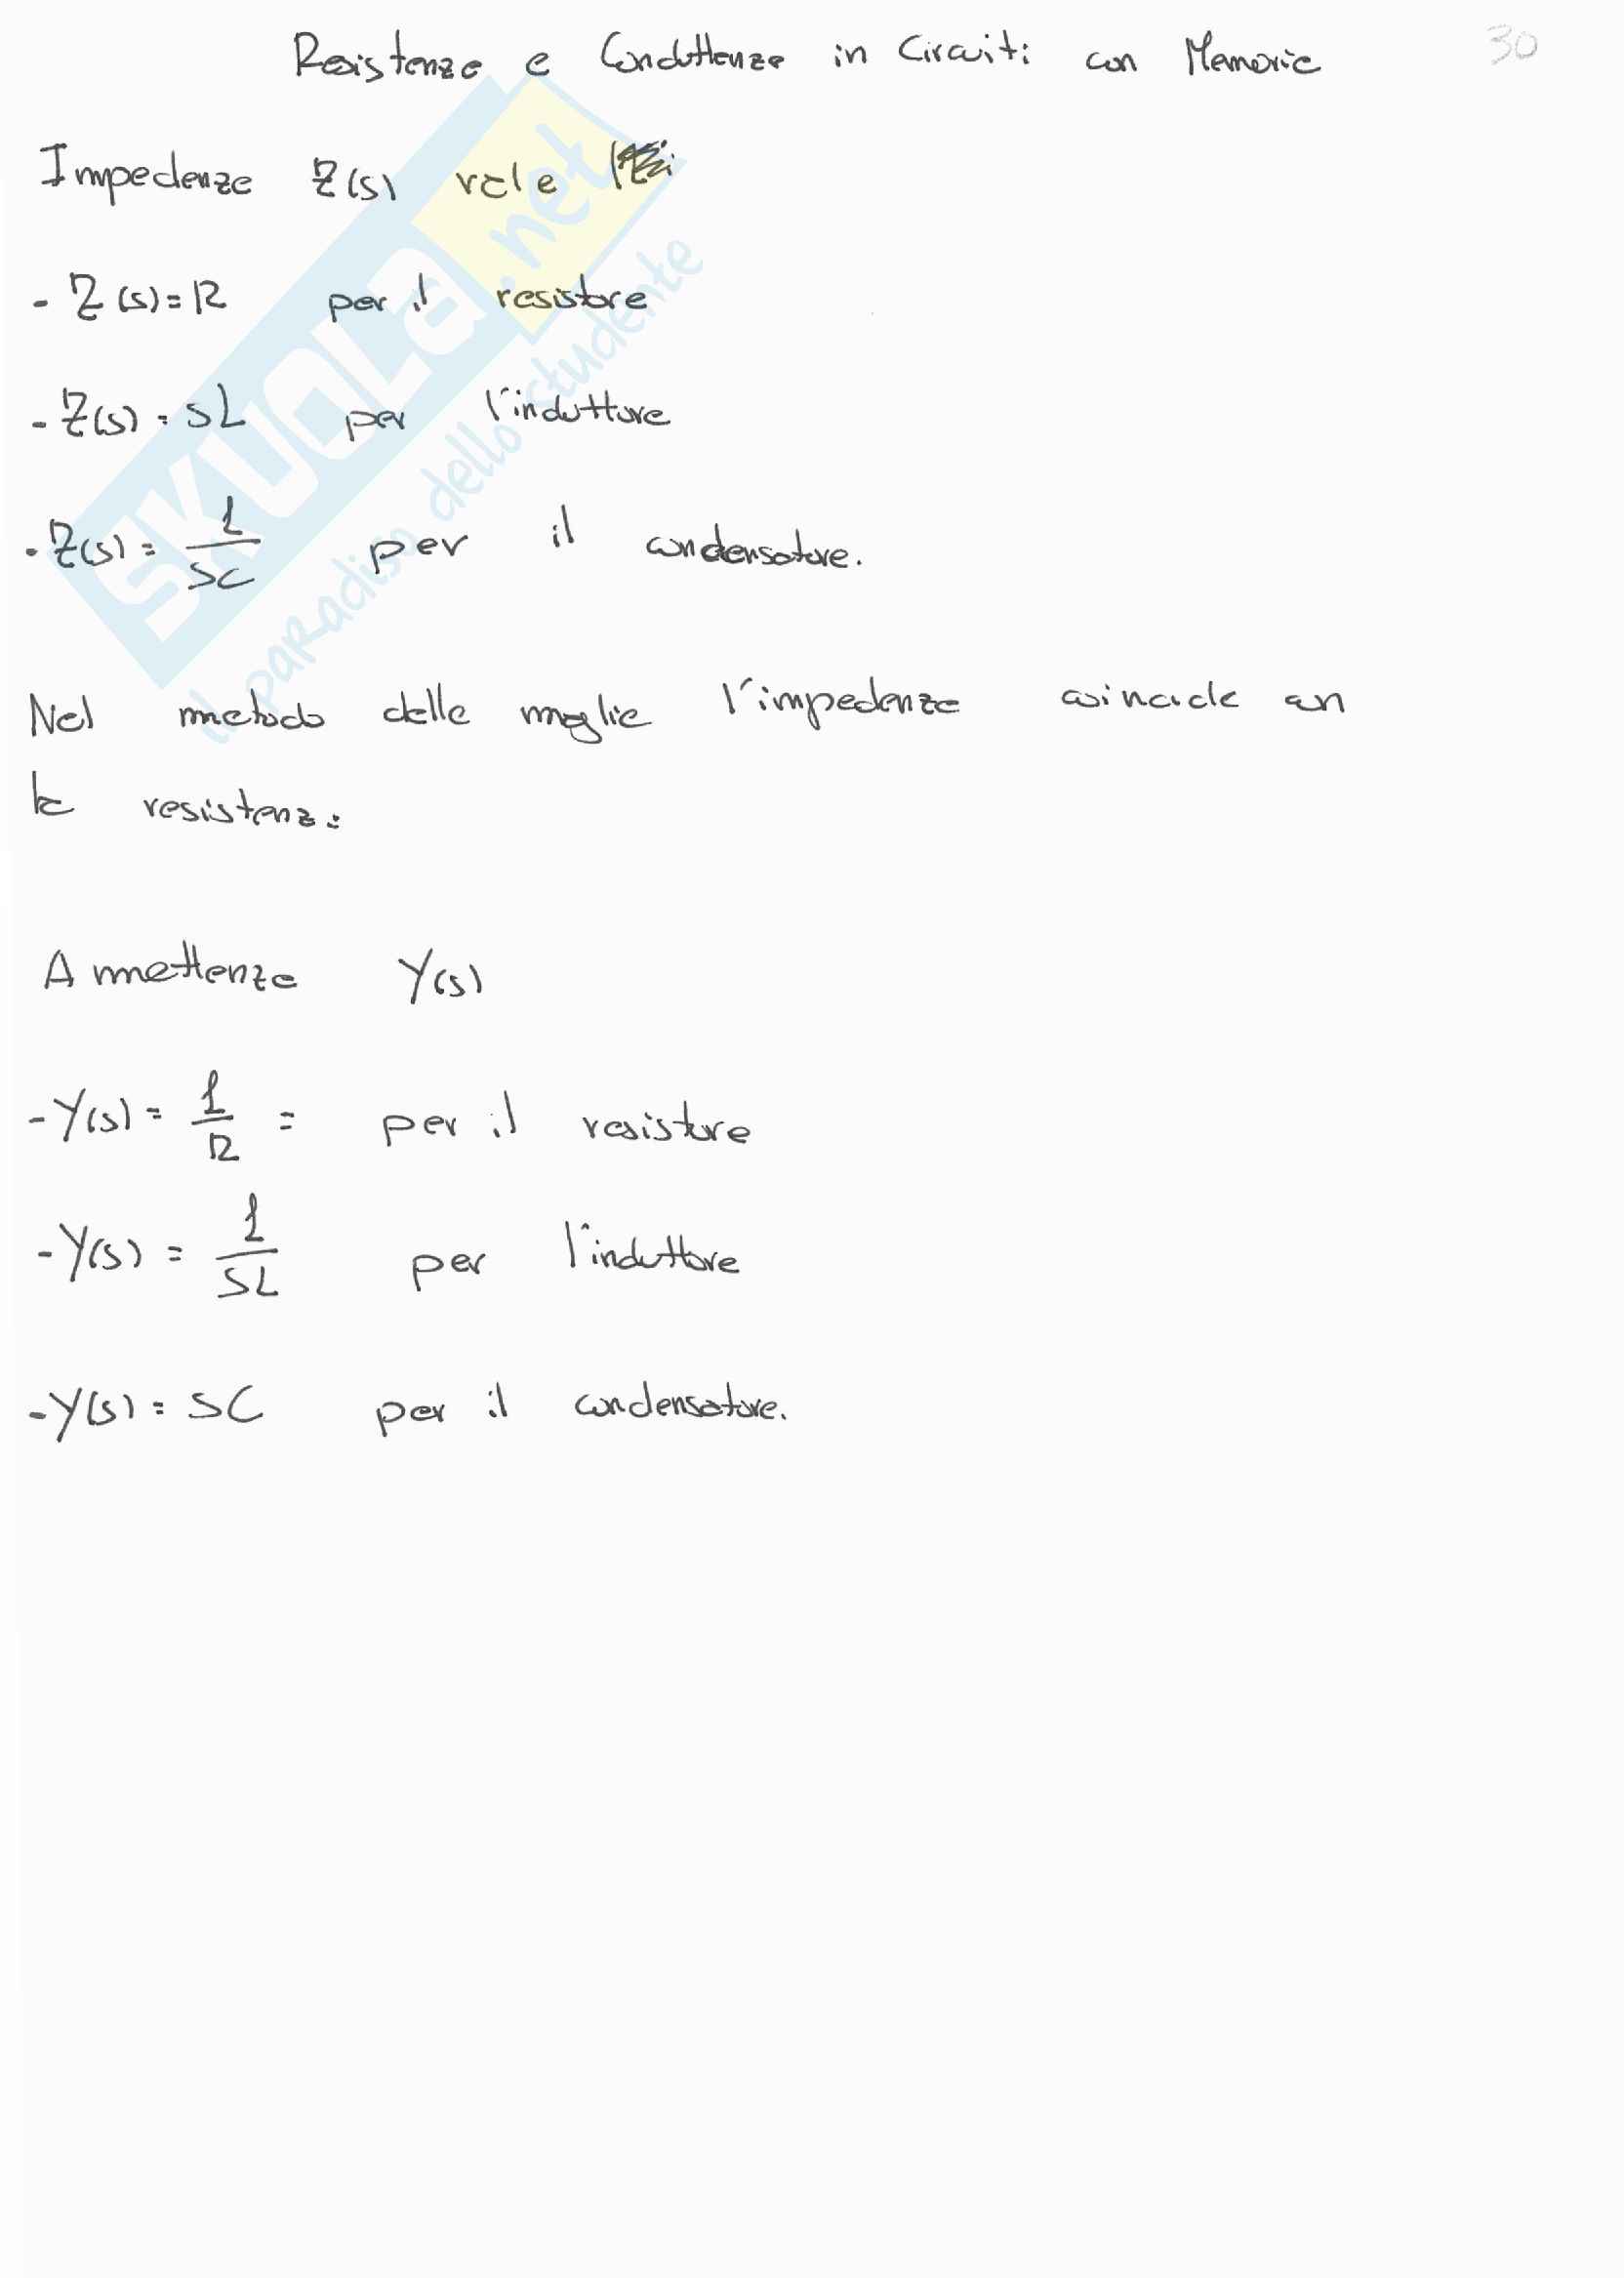 Resistenza e Conduttenza in Circuiti con Memoria 30
Impedenza Z(s) vale
- Z(s) = R per il resistore
- Z(s) = sL per l'induttore
- Z(s) = 1/sC per il condensatore.
Nel metodo delle maglie l'impedenza coincide con
la resistenza
Ammettenza Y(s)
- Y(s) = 1/R = per il resistore
- Y(s) = 1/sL per l'induttore
- Y(s) = sC per il condensatore.
SKUOLa.net
il paradiso dello studente